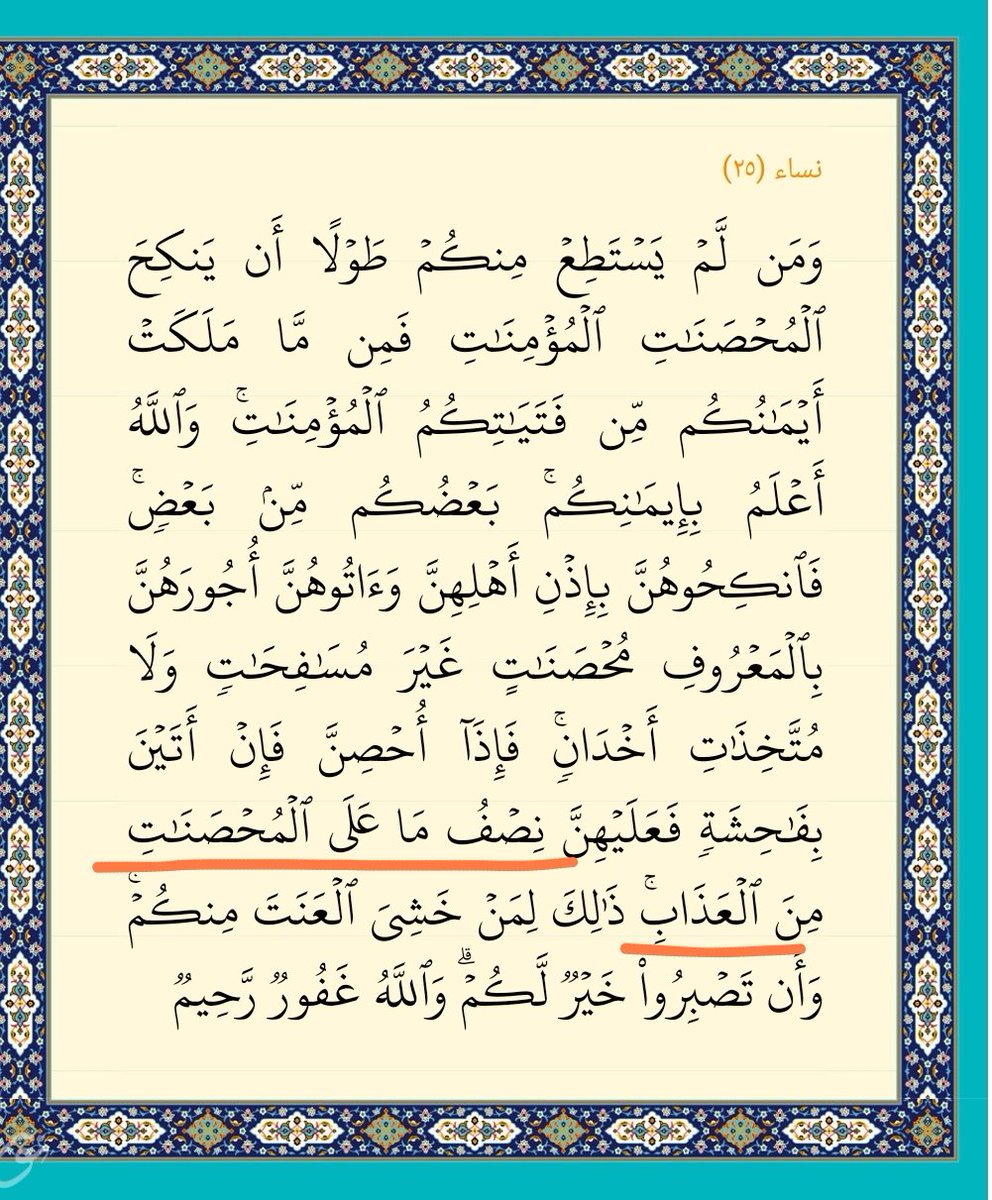 نساء (٢٥)
وَمَن لَّمۡ يَسۡتَطِعۡ مِنكُمۡ طَوۡلًا أَن يَنكِحَ
ٱلۡمُحۡصَنَٰتِ ٱلۡمُؤۡمِنَٰتِ فَمِن مَّا مَلَكَتۡ
أَيۡمَٰنُكُم مِّن فَتَيَٰتِكُمُ ٱلۡمُؤۡمِنَٰتِۚ وَٱللَّهُ
أَعۡلَمُ بِإِيمَٰنِكُمۚ بَعۡضُكُم مِّنۢ بَعۡضٖۚ
فَٱنكِحُوهُنَّ بِإِذۡنِ أَهۡلِهِنَّ وَءَاتُوهُنَّ أُجُورَهُنَّ
بِٱلۡمَعۡرُوفِ مُحۡصَنَٰتٍ غَيۡرَ مُسَٰفِحَٰتٖ وَلَا
مُتَّخِذَٰتِ أَخۡدَانٖۚ فَإِذَآ أُحۡصِنَّ فَإِنۡ أَتَيۡنَ
بِفَٰحِشَةٖ فَعَلَيۡهِنَّ نِصۡفُ مَا عَلَى ٱلۡمُحۡصَنَٰتِ
مِنَ ٱلۡعَذَابِۚ ذَٰلِكَ لِمَنۡ خَشِيَ ٱلۡعَنَتَ مِنكُمۡۚ
وَأَن تَصۡبِرُواْ خَيۡرٞ لَّكُمۡۗ وَٱللَّهُ غَفُورٞ رَّحِيمٞ